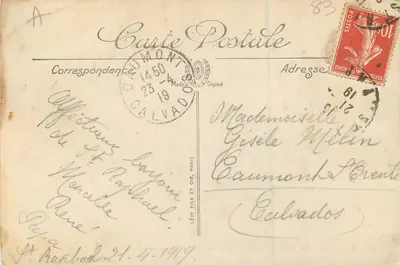 A
83
Carte Postale
Correspondance
Adresse
CAUMONT
14 50
23 - 4
19
CALVADOS
POSTES
10
21
19
Affectueux bonjour
de St Raphaël
Marcelle
René
Papa
St Raphaël 21-4-1919
LÉVY FILS ET CIE, PARIS
Mademoiselle
Gisèle Mélin
Caumont l'Evente
Calvados